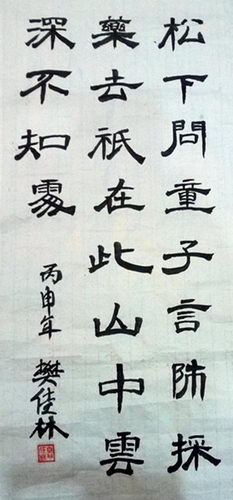 松下問童子言師採
藥去祇在此山中雲
深不知處
丙申年 樊佳林